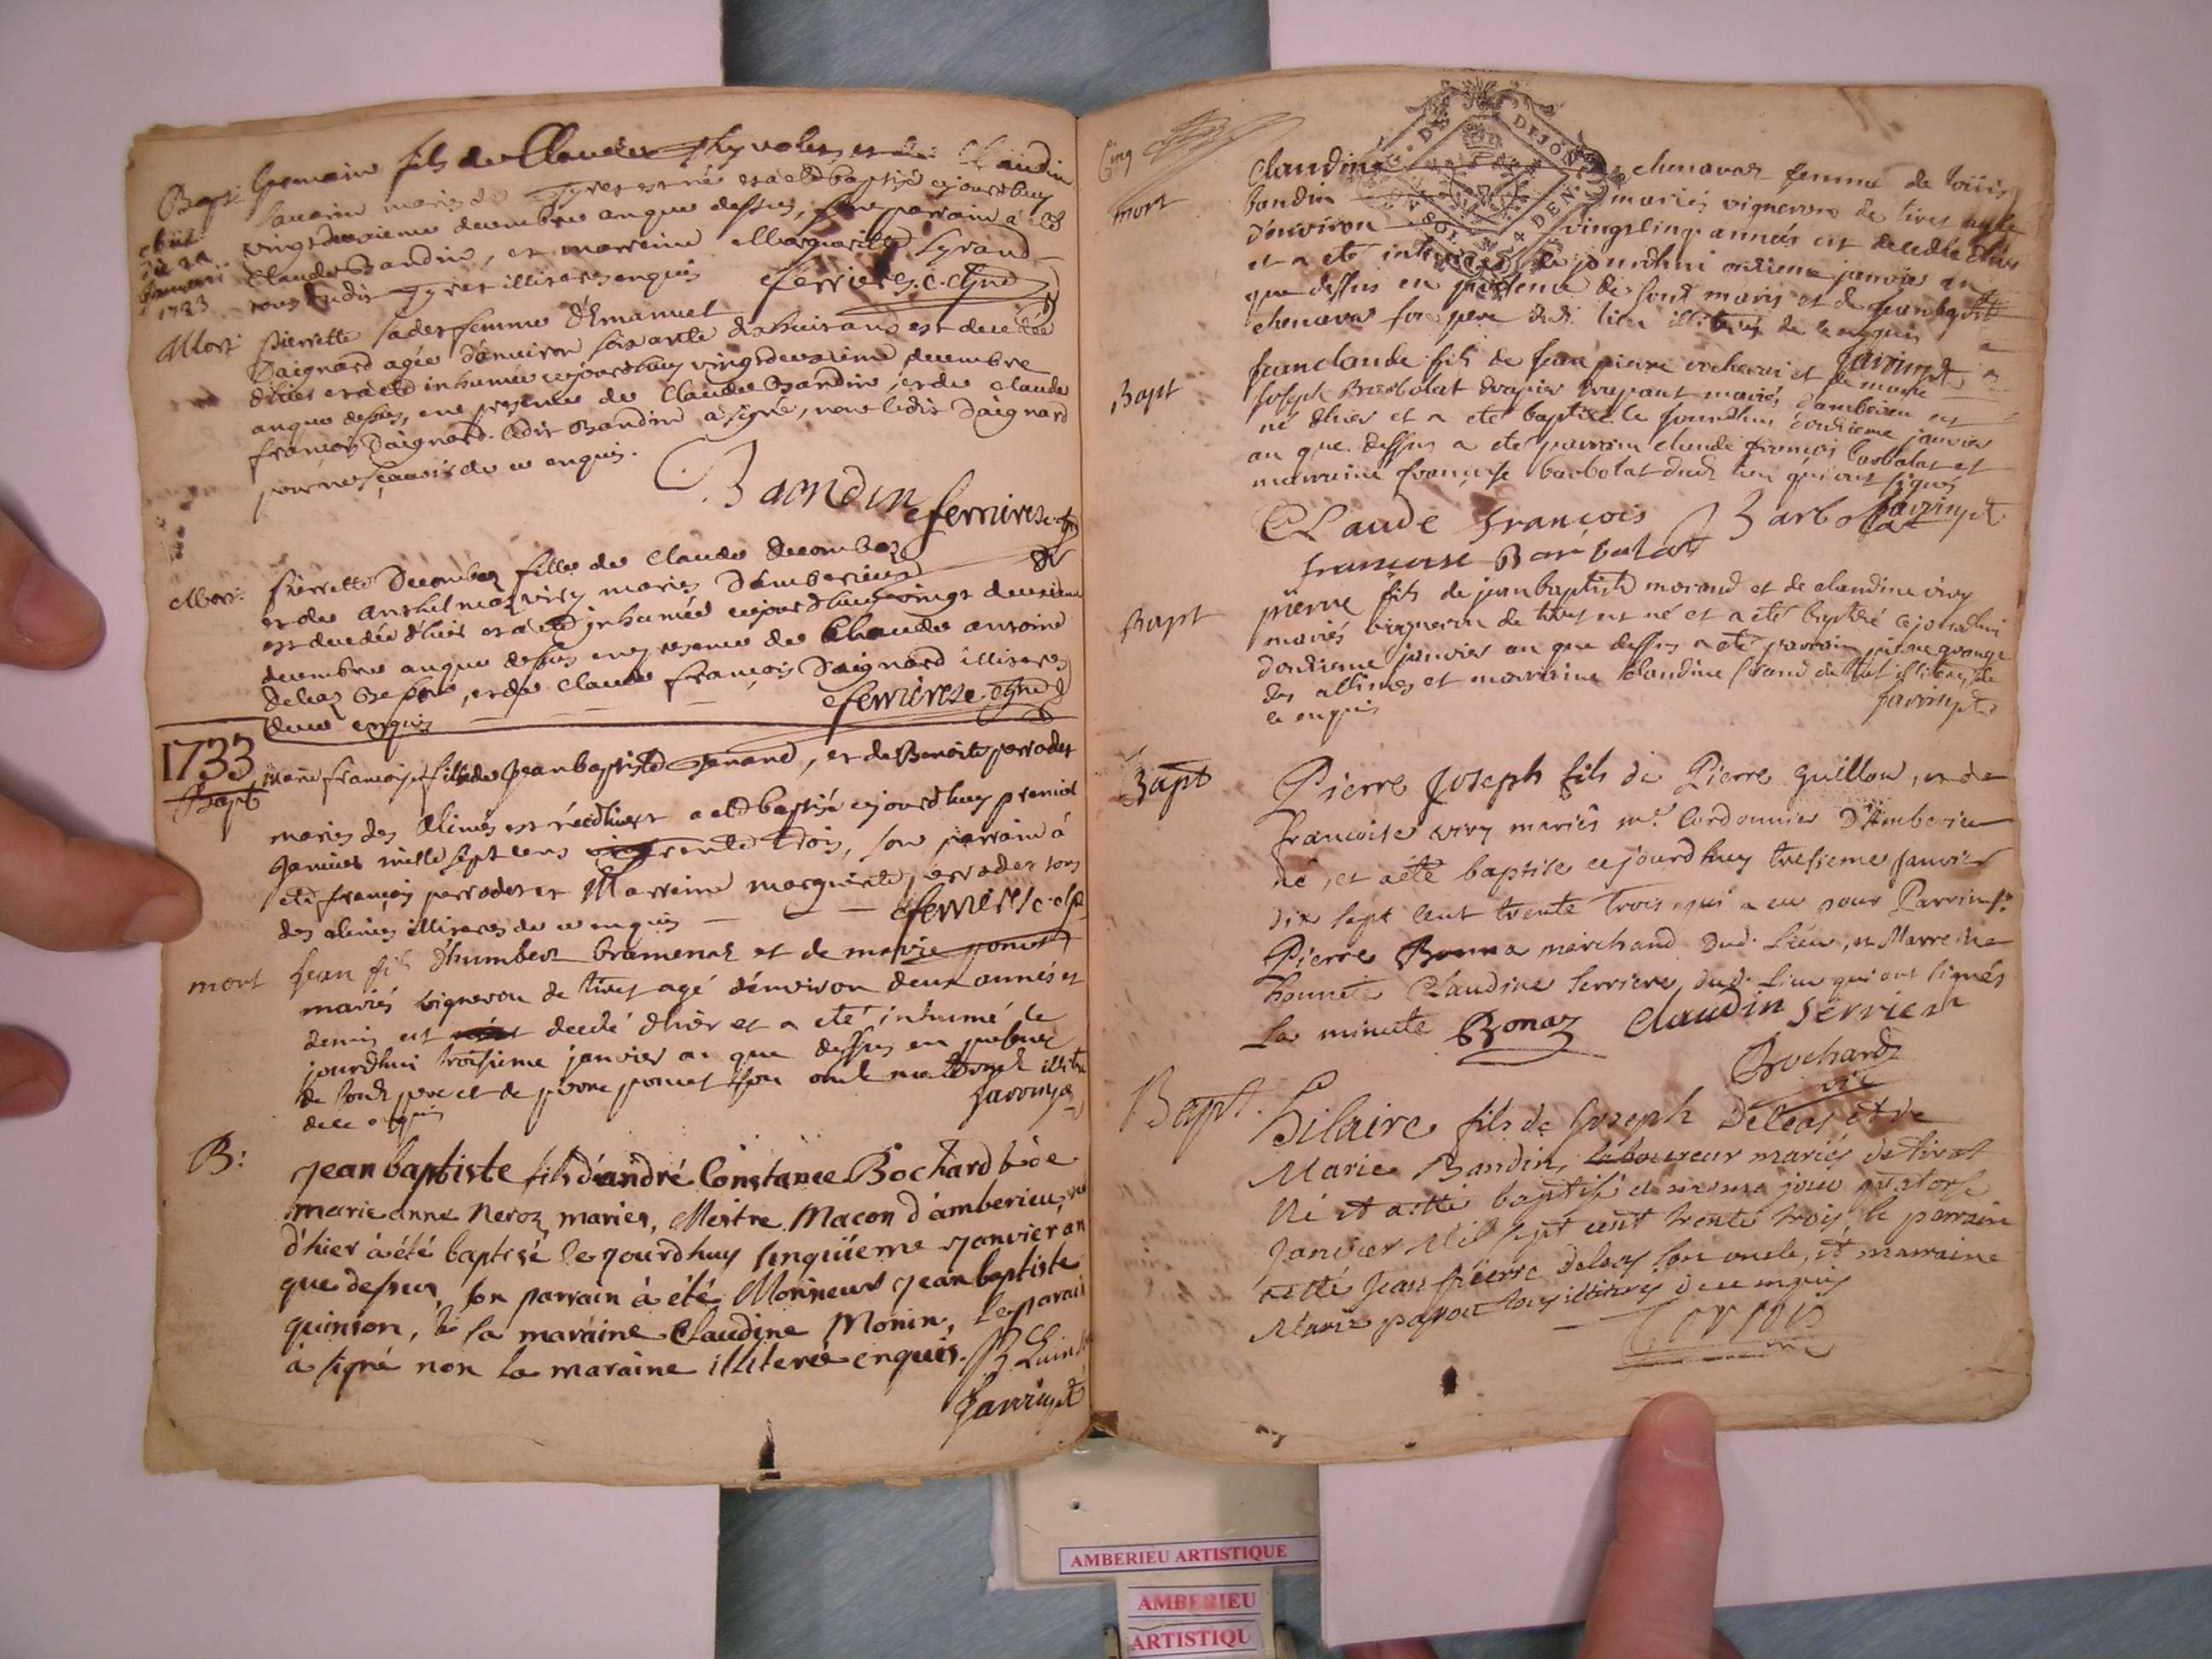 Bapt Germain fils de Claude et de Claudin
Savarin mariés de Tyret est né et a eté baptisé cejourdhuy
obiit
die 22
Januari
1733
vingtdeuxieme decembre an que dessus, son parrain a eté
Claude Bandin, et marreine Marguerite Tyrand
tous dudit Tyret illiteres enquis ferrierese. c. cgne
Mort Pierrette femme d'Emanuel
Daignard agée d'environ soixante dixhuit ans est decedée
d'hier et a eté inhumée cejourdhuy vingtdeuxieme decembre
an que dessus, en presence de Claude Bandin, et de Claude
françois Daignard. ledit Bandin a signé, non ledit Daignard
pour ne sçavoir de ce enquis.
Bandin ferrierese cgne
Mort: Pierrette Decombaz fille de Claude Decombaz
et de Anthelmaz viry mariés d'amberieu
est decedée d'hier et a eté inhumée cejourdhuy vingt deuxieme
decembre an que dessus en presence de Claude antoine
Delaz, et de Claude françois Daignard illiteres
de ce enquis ferrierese. cgne
1733
Bapt
marie françoise fille de Jean baptiste Tenand, et de Benoite perrodet
mariés des alimes est née d'hier et a eté baptisé cejourdhuy premier
Janvier mille sept cens trente trois, son parrain a
eté françois perrodet et Marreine marguerite perrodet tous
des alimes illiteres de ce enquis ferrierese
mort Jean fils d'humbert bramenaz et de marie ponet
mariés vigneron de tiret agé d'environ deux année et
demis est decedé d'hier et a eté inhumé le
jourdhui troisieme janvier an que dessus en presence
de sond. pere et de pierre ponet son oncle illitere
de ce enquis Favringt
B: Jean baptiste fils d'andré Constance Bochard & de
marie anne neroz mariés, Mestre Macon d'amberieu, né
d'hier à été baptisé le jourdhuy sinquiieme janvier an
que dessus, son parrain à été Monsieur Jean baptiste
quinson, & la maraine Claudine Monin, le parain
à signé non la maraine illiterée enquis. B Quins
Favringt
Cinq
mort
Claudine chenavaz femme de loüis
bandin mariés vigneron de tiret agée
d'environ vingtcinq années est decedée d'hier
et a eté inhumée le jourdhui onzieme janvier an
que dessus en presence de sond. maris et de jeanbaptiste
chenavaz son pere dud. lieu illiterés de ce enquis
Favringt
Bapt
Jean claude fils de Jean pierre et de marie
Joseph Barbolat drapier drapant mariés d'amberieu est
né d'hier et a eté baptisé le jourdhui douzieme janvier
an que dessus a eté parrain claude françois barbolat et
marraine françoise barbolat dud. lieu qui ont signés
CLaude françois Barbolat Favringt
françoise Barbolat
Bapt
pierre fils de jean baptiste morand et de claudine viry
mariés vigneron de tiret est né et a eté baptisé cejourdhui
douzieme janvier an que dessus a eté parrain pierre grange
des allimes et marraine claudine tirand de tiret illiteres de
ce enquis Favringt
Bapt Pierre Joseph fils de Pierre guillon, et de
françoise viry mariés me. Cordonnier d'Amberieu
né, et aété baptise cejourdhuy tresieme Janvier
dix sept cent trente trois qui a eu pour Parrin sr.
Pierre Bonna marchand dud. Lieu, et Marreine
honnete Claudine Serriere, dud. Lieu qui ont signés
la minute Bonaz Claudin Serrier
Bochard
vic
Bapt. hilaire fils de Joseph Deleas et de
Marie Bandin, laboureur mariés de tiret
Né et aetté baptisé le mesme jour quatorse
Janvier Mil sept cent trente trois, le parrain
aetté Jean pierre Deleas son oncle, et marraine
Marie tous illiterés de ce enquis
· DE DIJON ·
SOLS 4 DEN.
AMBERIEU ARTISTIQUE
AMBERIEU
ARTISTIQU